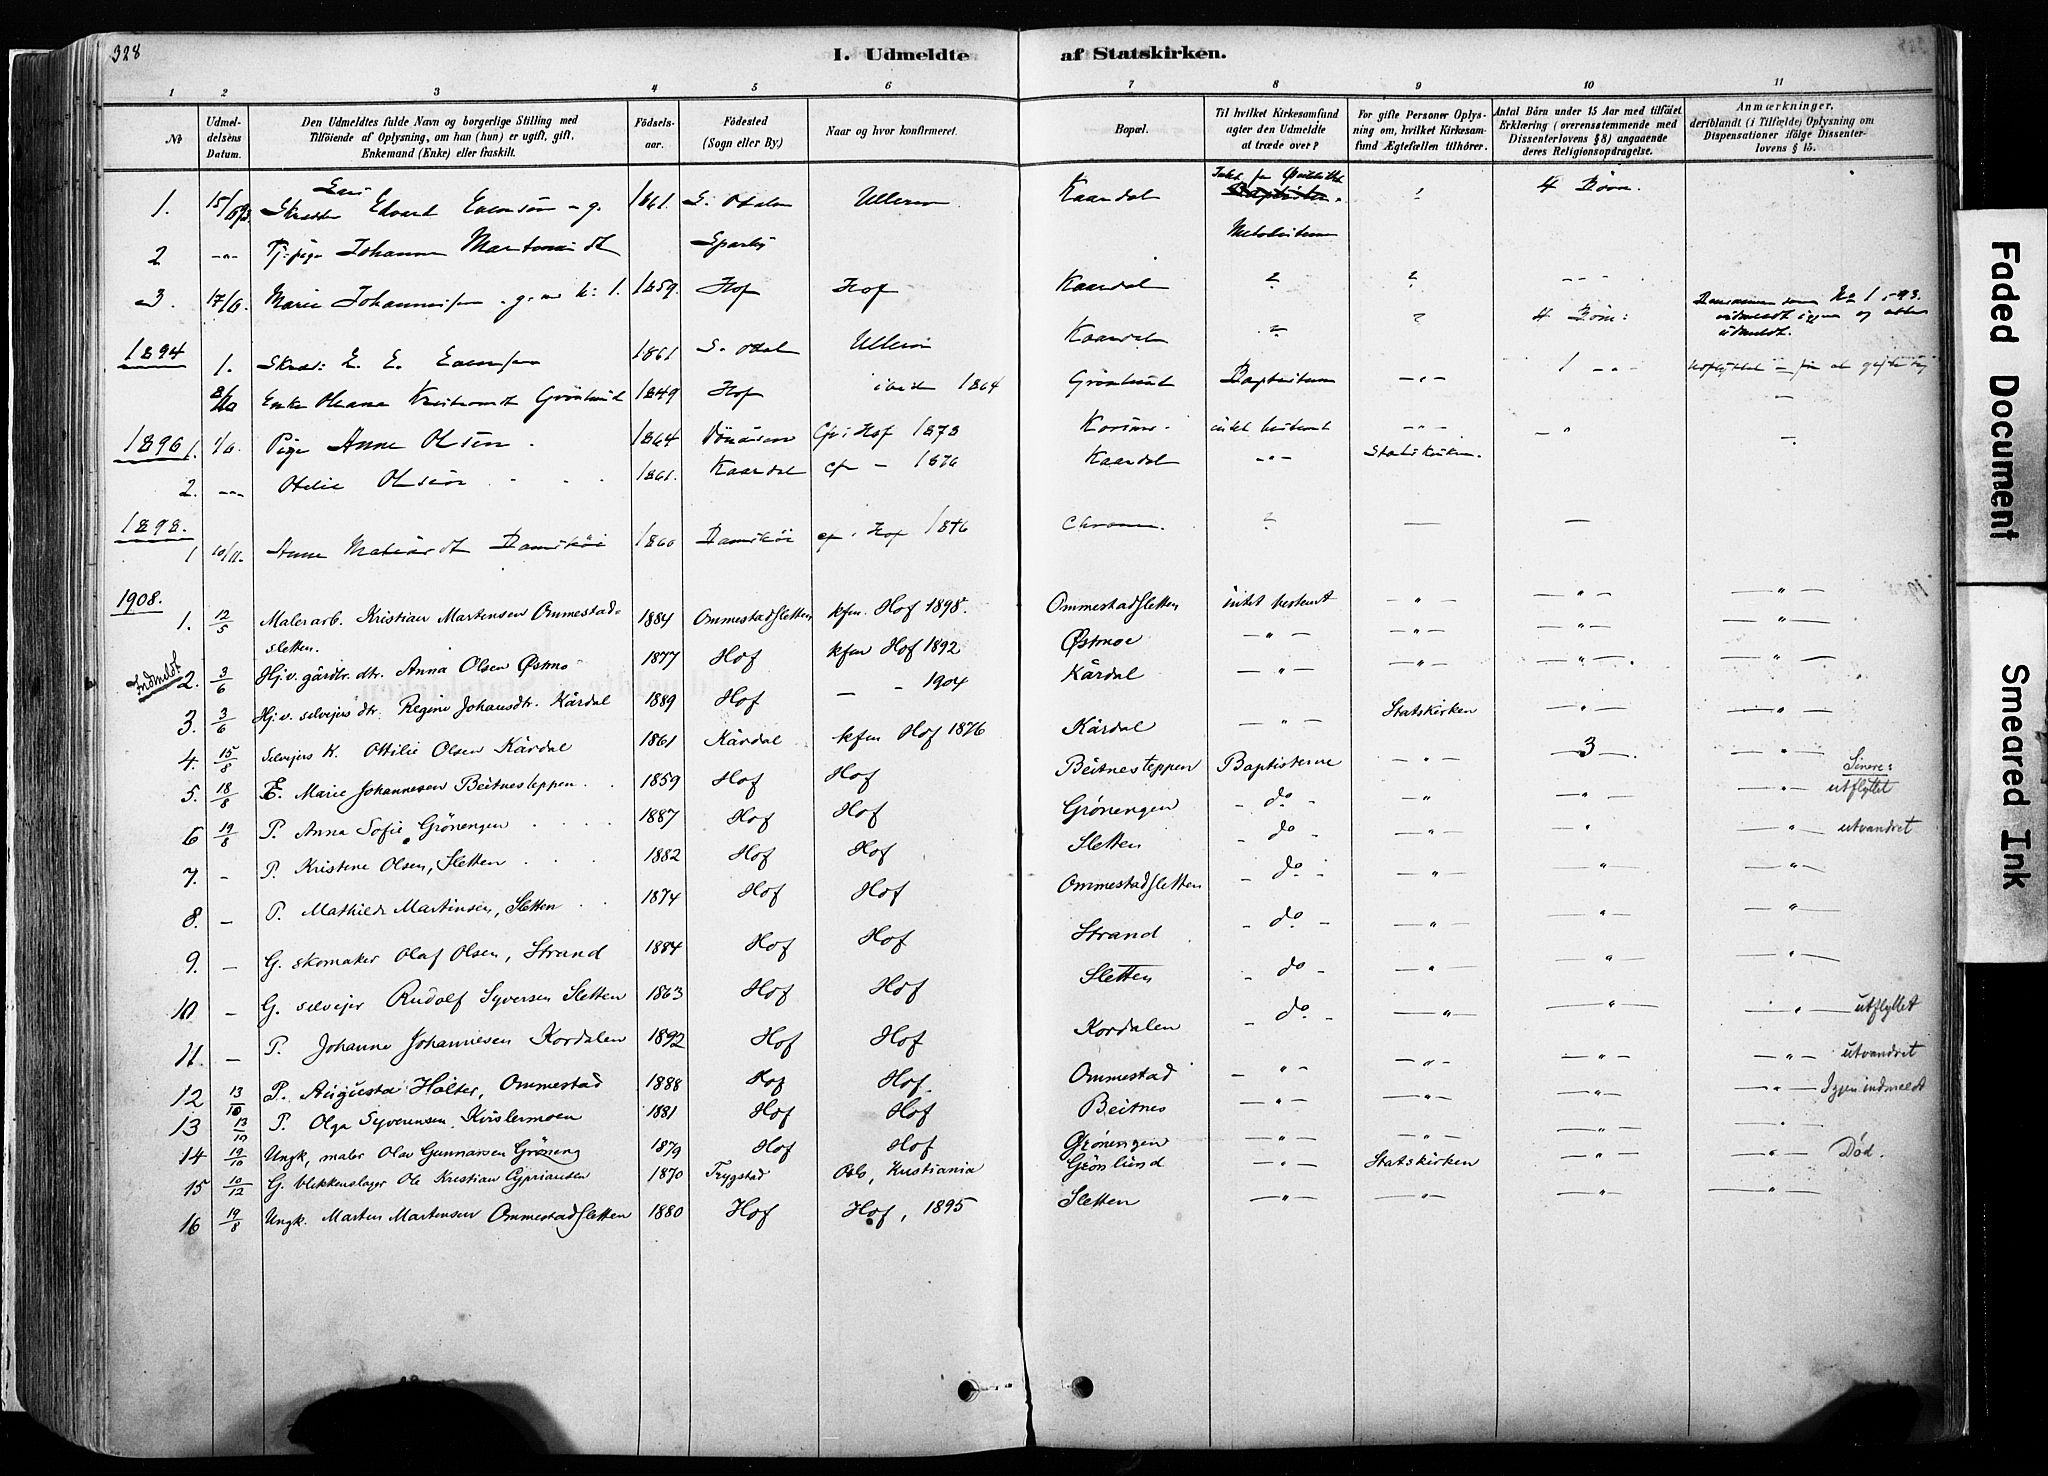 328
I. Udmeldte af Statskirken.
1 2 3 4 5 6 7 8 9 10 11
No
Udmeldelsens Datum.
Den Udmeldtes fulde Navn og borgerlige Stilling med Tilföiende af Oplysning, om han (hun) er ugift, gift, Enkemand (Enke) eller fraskilt.
Födselsaar.
Födested (Sogn eller By.)
Naar og hvor konfirmeret.
Bopæl.
Til hvilket Kirkesamfund agter den Udmeldte at træde over?
For gifte Personer Oplysning om, hvilket Kirkesamfund Ægtefællen tilhörer.
Antal Börn under 15 Aar med tilföiet Erklæring (overensstemmende med Dissenterlovens §8) angaaende deres Religionsopdragelse.
Anmærkninger, deriblandt (i Tilfælde) Oplysning om Dispensationer ifölge Dissenterlovens § 15.
1. 15/6 93 Edvard Evensen - g. 1861. S. Odalen Ullern Kaardal 4 Börn.
2 -"- Johanne Metodisterne
3. 17/6. Marie Johannesen 1859. Hof Hof Kaardal
1894 1. E. E. Evensen 1861 S. Odal Ullern Kaardal 4 Börn: No 1 - 93.
Enke Oleana Grönlund 1849 Hof 1864 Grönlund Baptisterne
1896 1. 1/6. Pige Anne Olsen 1864 Hof 1878 intet bestemt
2. -"- Otelie Olsen 1861. Kaardal 1876 Kaardal Statskirken.
1898.
1 10/11. Anne Damskôi 1860 Damskôi Hof 1876
1908.
1. 12/5 Malerarb. Kristian Martensen Ommestadsletten. 1884 Ommestadsletten kfm. Hof 1898. Ommestadsletten intet bestemt
Indmeldt 2. 3/6 Hj.v. gårdbr. dtr. Anna Olsen Østmo 1877 Hof kfm Hof 1892 Østmoe
3. 3/6 Hj.v. selvejers dtr. Regine Johansdtr. Kårdal 1889 Hof - - 1904 Kårdal
4. 15/8 Selvejers K. Ottilie Olsen Kårdal 1861 Kårdal kfm Hof 1876 Kårdal -"- Statskirken
5. 18/8 E. Marie Johannesen Beitnesteppen 1859 Hof Hof Beitnesteppen Baptisterne 3 utflyttet
6 19/8 P. Anna Sofie Grönengen 1887 Hof Hof Grönengen - do - utvandret
7. - P. Kristene Olsen, Sletten 1882 Hof Hof Sletten - do -
8. - P. Mathilde Martinsen, Sletten 1874 Hof Hof Ommestadsletten - do -
9. - G. skomaker Olaf Olsen, Strand 1884 Hof Hof Strand - do -
10 - G. selvejer Rudolf Syversen Sletten 1863 Hof Hof Sletten - do - utflyttet
11. - P. Johanne Johannesen Kordalen 1892 Hof Hof Kordalen - do - utvandret
12 13/10 P. Augusta Holter, Ommestad 1888 Hof Hof. Ommestad -"- Igjen indmeldt
13 13/10 P. Olga Syverensen, Kvislermoen 1881 Hof Hof Beitnes -"-
14 19/10 Ungk, maler Olav Gunnarsen Gröneng 1879 Hof Hof Grönengen -"- Död.
15 10/12 G. blikkenslager Ole Kristian Cyprianusen 1870 Trygstad Oslo, Kristiania Grönlund -"- Statskirken
16 19/8 Ungk. Marten Martensen Ommestadsletten 1880 Hof Hof, 1895 Sletten -"-
Faded Document
Smeared Ink